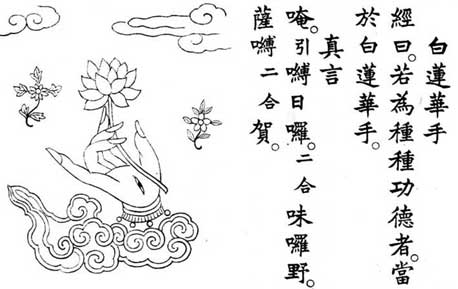 白蓮華手
經曰。若為種種功德者。當
於白蓮華手。
真言
唵。引嚩日囉。二合味囉野。
薩嚩二合賀。